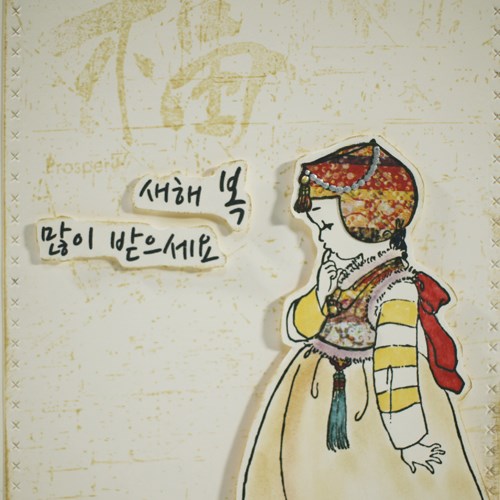 福
Prosperity
새해 복
많이 받으세요